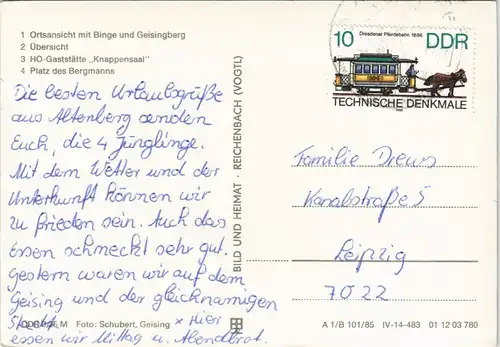 1 Ortsansicht mit Binge und Geisingberg
2 Übersicht
3 HO-Gaststätte „Knappensaal"
4 Platz des Bergmanns
Die besten Urlaubsgrüße
aus Altenberg senden
Euch, die 4 Jünglinge.
Mit dem Wetter und der
Unterkunft können wir
zu frieden sein. Auch das
Essen schmeckt sehr gut.
Gestern waren wir auf dem
Geising und der gleichnamigen
Stadt. × Hier
essen wir Mittag u. Abendbrot.
M Foto: Schubert, Geising
BILD UND HEIMAT · REICHENBACH (VOGTL)
Dresdener Pferdebahn 1886
10 DDR
TECHNISCHE DENKMALE
Familie Drews
Kanalstraße 5
Leipzig
7022
A 1/B 101/85 IV-14-483 01 12 03 780